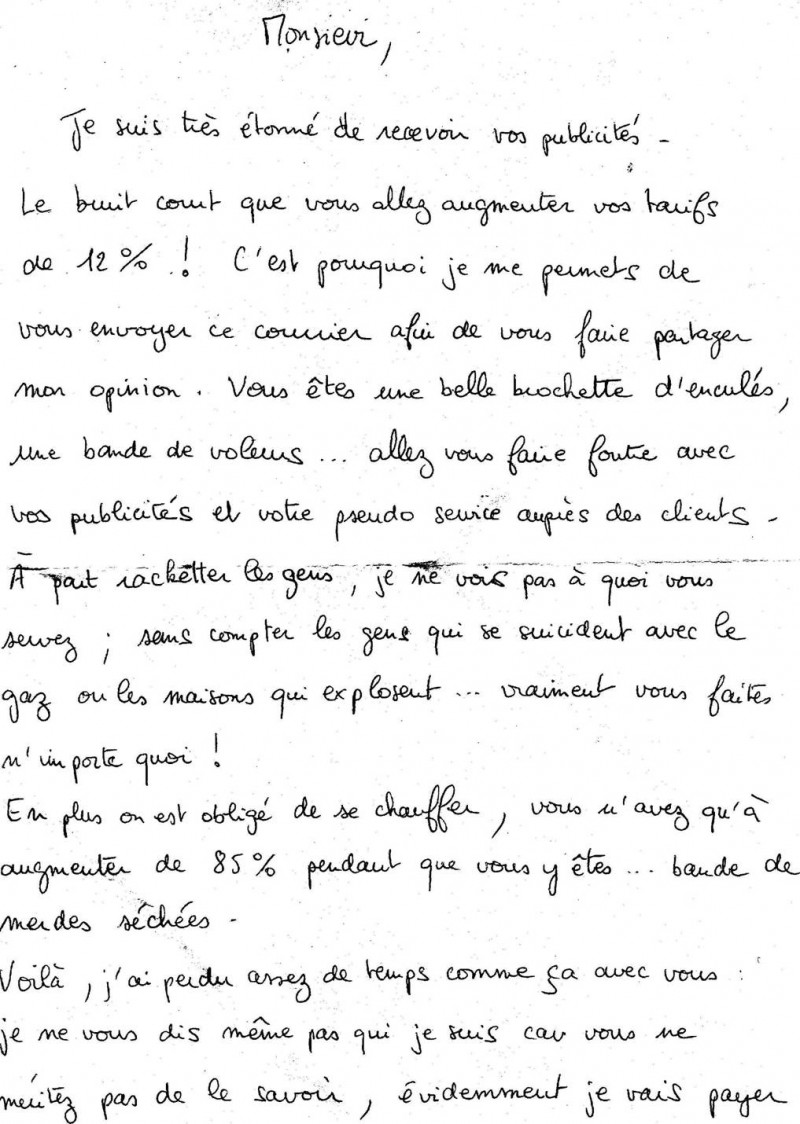 Monsieur,
Je suis très étonné de recevoir vos publicités -
Le bruit court que vous allez augmenter vos tarifs
de 12 % ! C'est pourquoi je me permets de
vous envoyer ce courrier afin de vous faire partager
mon opinion. Vous êtes une belle brochette d'enculés,
une bande de voleurs ... allez vous faire foutre avec
vos publicités et votre pseudo service auprès des clients -
À part racketter les gens, je ne vois pas à quoi vous
servez ; sans compter les gens qui se suicident avec le
gaz ou les maisons qui explosent ... vraiment vous faites
n'importe quoi !
En plus on est obligé de se chauffer, vous n'avez qu'à
augmenter de 85 % pendant que vous y êtes ... bande de
merdes séchées -
Voilà, j'ai perdu assez de temps comme ça avec vous :
je ne vous dis même pas qui je suis car vous ne
méritez pas de le savoir, évidemment je vais payer